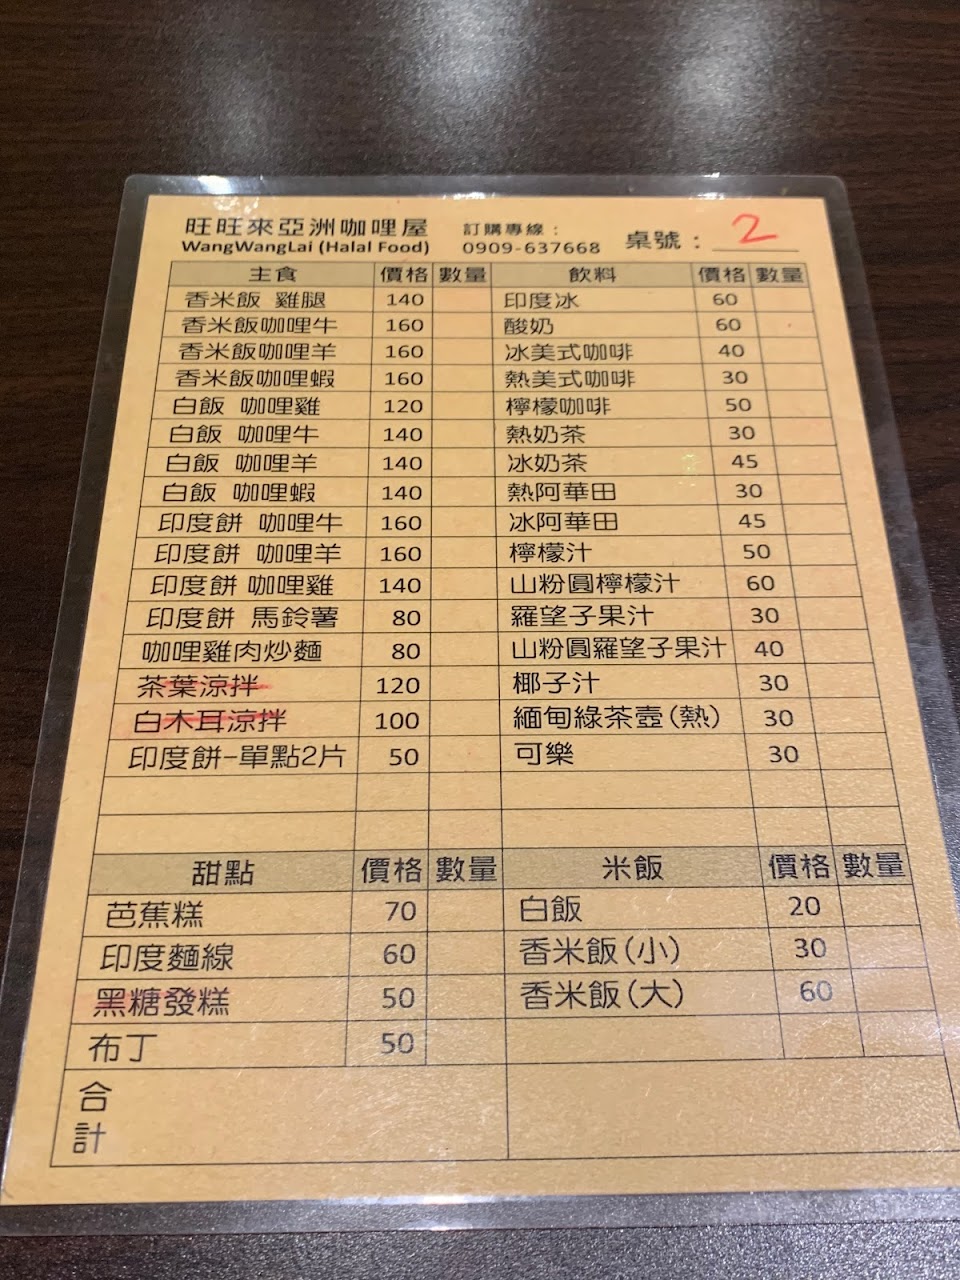 旺旺來亞洲咖哩屋 訂購專線：
WangWangLai (Halal Food) 0909-637668 桌號：2
主食 價格 數量 飲料 價格 數量
香米飯 雞腿 140 印度冰 60
香米飯咖哩牛 160 酸奶 60
香米飯咖哩羊 160 冰美式咖啡 40
香米飯咖哩蝦 160 熱美式咖啡 30
白飯 咖哩雞 120 檸檬咖啡 50
白飯 咖哩牛 140 熱奶茶 30
白飯 咖哩羊 140 冰奶茶 45
白飯 咖哩蝦 140 熱阿華田 30
印度餅 咖哩牛 160 冰阿華田 45
印度餅 咖哩羊 160 檸檬汁 50
印度餅 咖哩雞 140 山粉圓檸檬汁 60
印度餅 馬鈴薯 80 羅望子果汁 30
咖哩雞肉炒麵 80 山粉圓羅望子果汁 40
茶葉涼拌 120 椰子汁 30
白木耳涼拌 100 緬甸綠茶壺(熱) 30
印度餅-單點2片 50 可樂 30
甜點 價格 數量 米飯 價格 數量
芭蕉糕 70 白飯 20
印度麵線 60 香米飯(小) 30
黑糖發糕 50 香米飯(大) 60
布丁 50
合
計